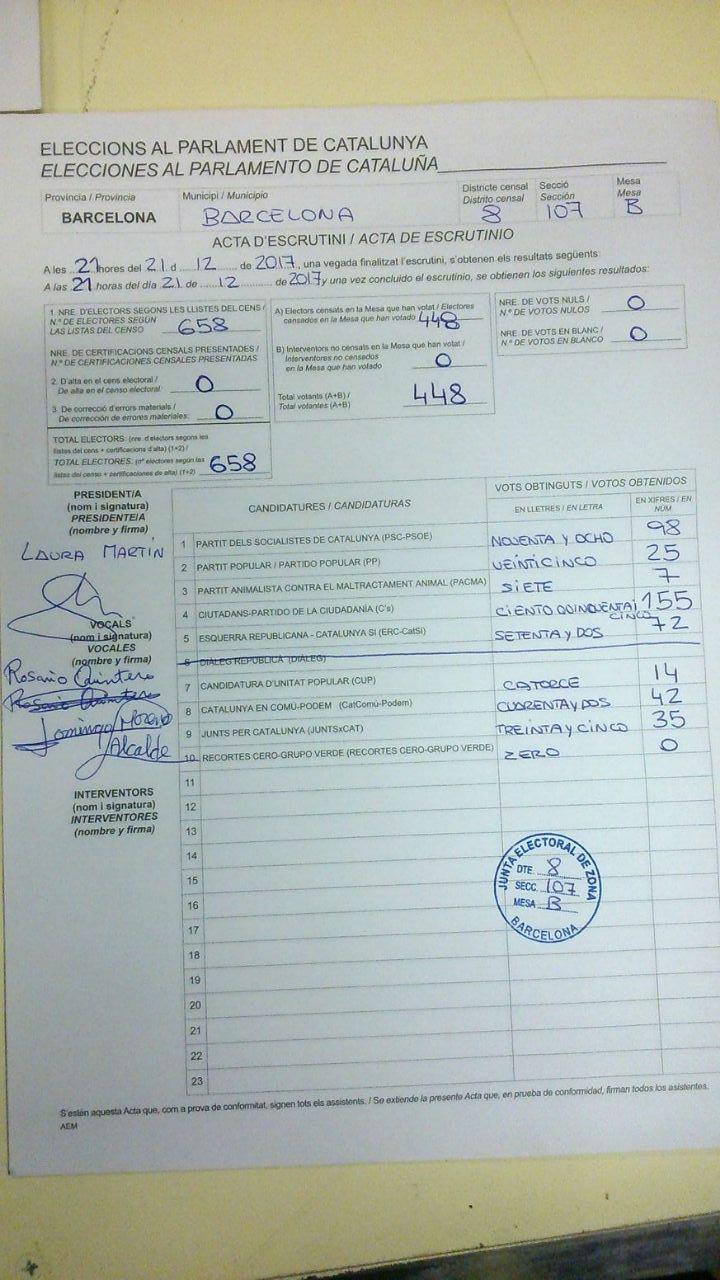 ELECCIONS AL PARLAMENT DE CATALUNYA
ELECCIONES AL PARLAMENTO DE CATALUÑA
Província / Provincia Municipi / Municipio Districte censal Secció Mesa
Distrito censal Sección Mesa
BARCELONA BARCELONA 8 107 B
ACTA D'ESCRUTINI / ACTA DE ESCRUTINIO
A les 21 hores del 21 d 12 de 2017, una vegada finalitzat l'escrutini, s'obtenen els resultats següents:
A las 21 horas del día 21 de 12 de 2017 y una vez concluido el escrutinio, se obtienen los siguientes resultados:
1. NRE. D'ELECTORS SEGONS LES LLISTES DEL CENS /
N.º DE ELECTORES SEGÚN
LAS LISTAS DEL CENSO 658
NRE. DE CERTIFICACIONS CENSALS PRESENTADES /
N.º DE CERTIFICACIONES CENSALES PRESENTADAS
2. D'alta en el cens electoral /
De alta en el censo electoral 0
3. De correcció d'errors materials /
De corrección de errores materiales: 0
TOTAL ELECTORS: (nre. d'electors segons les
llistes del cens + certificacions d'alta) (1+2) /
TOTAL ELECTORES: (nº electores según las
listas del censo + certificaciones de alta) (1+2) 658
A) Electors censats en la Mesa que han votat / Electores
censados en la Mesa que han votado 448
B) Interventors no censats en la Mesa que han votat /
Interventores no censados
en la Mesa que han votado 0
Total votants (A+B) /
Total votantes (A+B) 448
NRE. DE VOTS NULS /
N.º DE VOTOS NULOS 0
NRE. DE VOTS EN BLANC /
N.º DE VOTOS EN BLANCO 0
PRESIDENT/A
(nom i signatura)
PRESIDENTE/A
(nombre y firma)
LAURA MARTIN
VOCALS
(nom i signatura)
VOCALES
(nombre y firma)
Rosario Quintero
Rosario Quintero
Domingo Moreno
Alcalde
INTERVENTORS
(nom i signatura)
INTERVENTORES
(nombre y firma)
CANDIDATURES / CANDIDATURAS VOTS OBTINGUTS / VOTOS OBTENIDOS
EN LLETRES / EN LETRA EN XIFRES / EN NÚM.
1 PARTIT DELS SOCIALISTES DE CATALUNYA (PSC-PSOE) NOVENTA Y OCHO 98
2 PARTIT POPULAR / PARTIDO POPULAR (PP) VEINTICINCO 25
3 PARTIT ANIMALISTA CONTRA EL MALTRACTAMENT ANIMAL (PACMA) SIETE 7
4 CIUTADANS-PARTIDO DE LA CIUDADANÍA (C's) CIENTO QUINQUENTA i CINCO 155
5 ESQUERRA REPUBLICANA - CATALUNYA SI (ERC-CatSí) SETENTA Y DOS 72
6 DIÀLEG REPUBLICÀ (DIÀLEG)
7 CANDIDATURA D'UNITAT POPULAR (CUP) CATORCE 14
8 CATALUNYA EN COMÚ-PODEM (CatComú-Podem) CUARENTA Y DOS 42
9 JUNTS PER CATALUNYA (JUNTSxCAT) TREINTA Y CINCO 35
10 RECORTES CERO-GRUPO VERDE (RECORTES CERO-GRUPO VERDE) ZERO 0
11
12
13
14
15
16
17
18
19
20
21
22
23
JUNTA ELECTORAL DE ZONA
DTE. 8
SECC. 107
MESA B
BARCELONA
S'estén aquesta Acta que, com a prova de conformitat, signen tots els assistents. / Se extiende la presente Acta que, en prueba de conformidad, firman todos los asistentes.
AEM